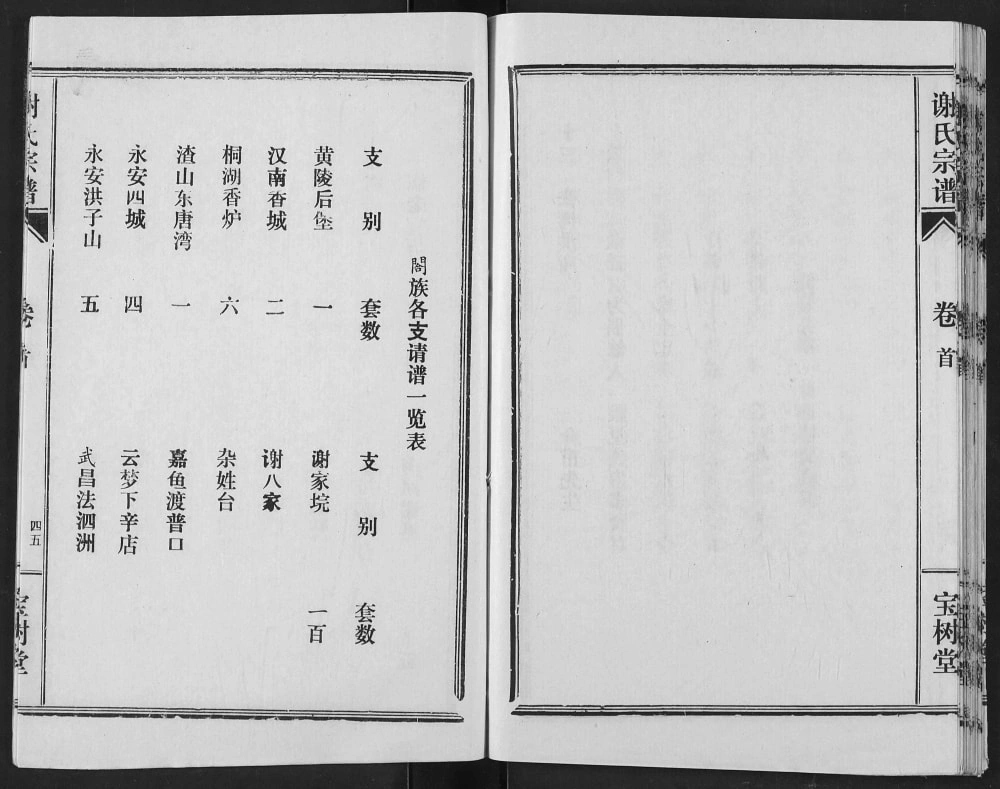 谢氏宗谱
卷首
宝树堂
閤族各支请谱一览表
支别 套数 支别 套数
黄陵后堡 一 谢家垸 一百
汉南香城 二 谢八家
桐湖香炉 六 杂姓台
渣山东唐湾 一 嘉鱼渡普口
永安四城 四 云梦下辛店
永安洪子山 五 武昌法泗洲
谢氏宗谱
卷首
四五
宝树堂